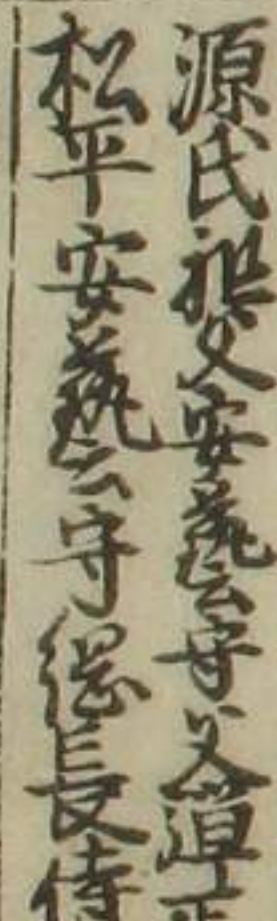 源氏祖父安藝守父道
松平安藝守綱長侍